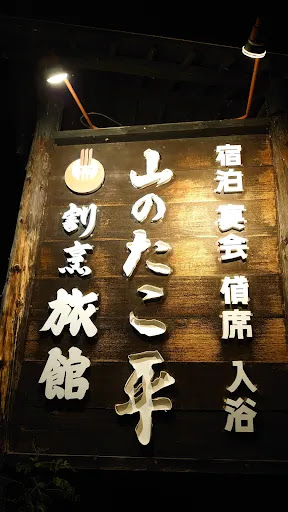 宿泊 宴会 値席 入浴
山のたこ平
割烹旅館